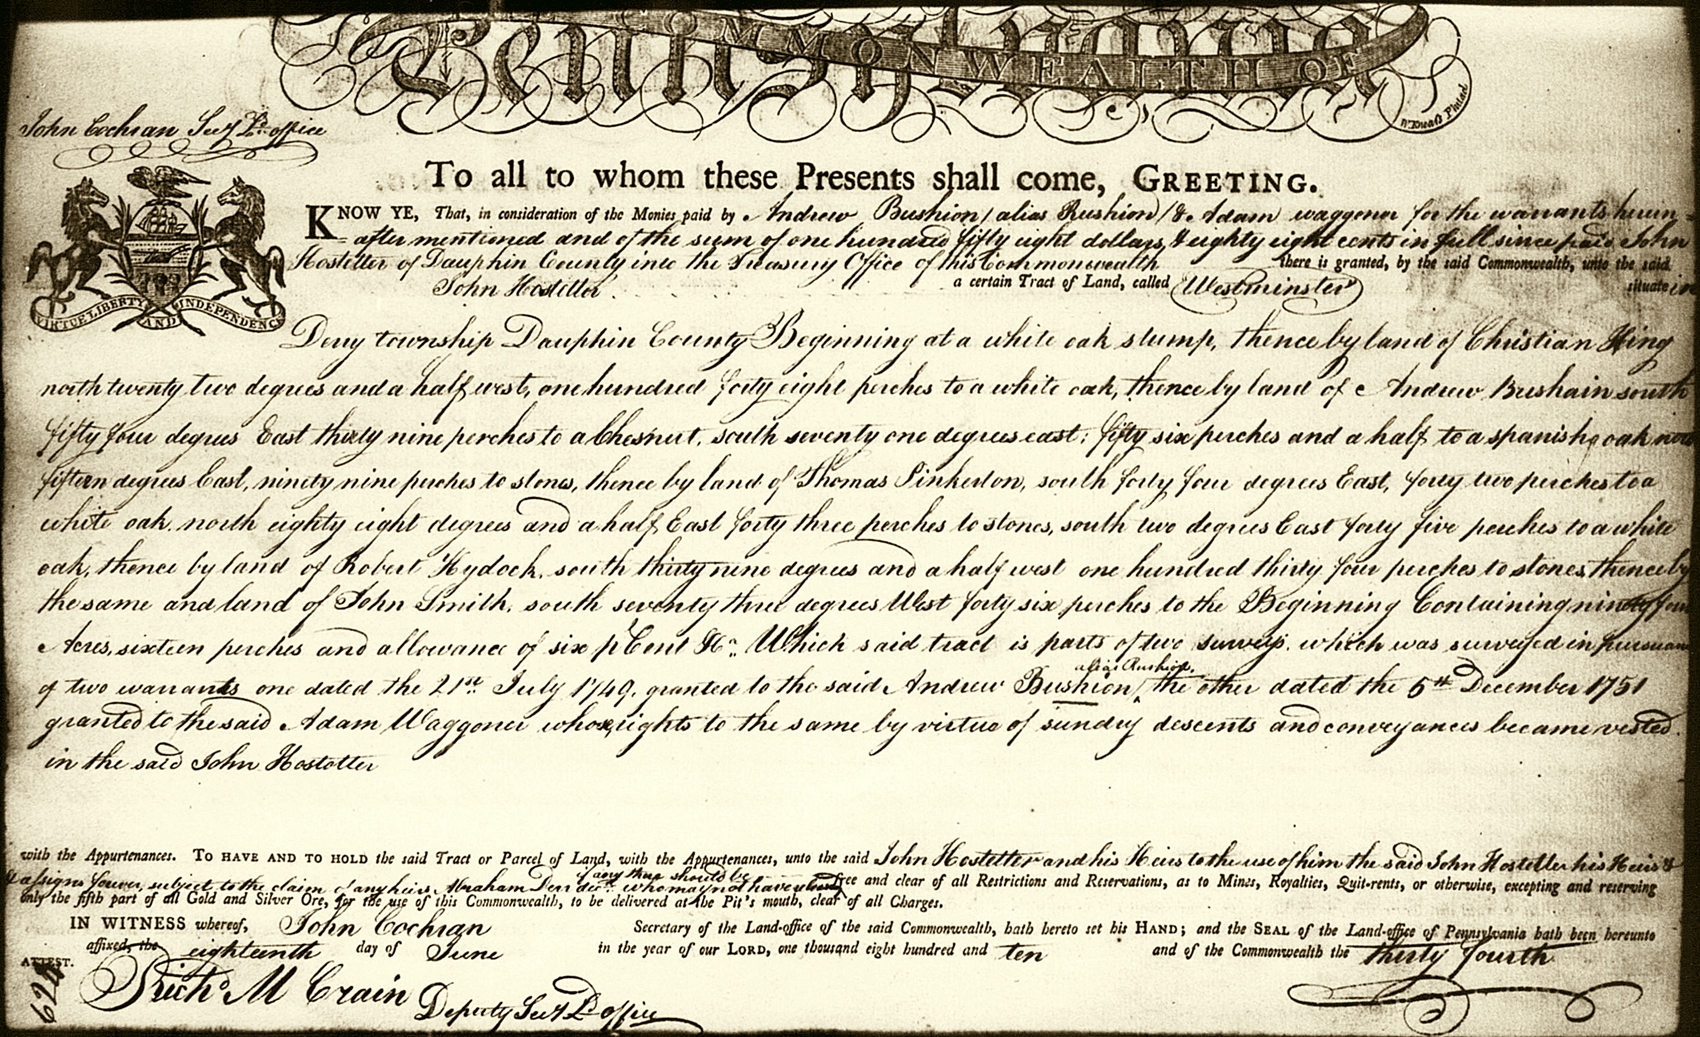 COMMONWEALTH OF
Pennsylvania
John Cochran Secy Ld. office
To all to whom these Presents shall come, GREETING.
KNOW YE, That, in consideration of the Monies paid by Andrew Bushion / alias Rushion / & Adam waggoner for the warrants herein=
after mentioned and of the sum of one hundred fifty eight dollars, & eighty eight cents in full since paid John
Hostetter of Dauphin County into the Treasury Office of this Commonwealth there is granted, by the said Commonwealth, unto the said
John Hostetter a certain Tract of Land, called Westminster situate in
VIRTUE LIBERTY AND INDEPENDENCE
Derry township Dauphin County Beginning at a white oak stump, thence by land of Christian King
north twenty two degrees and a half west, one hundred forty eight perches to a white oak, thence by land of Andrew Bushain south
fifty four degrees East thirty nine perches to a Chesnut, south seventy one degrees east; fifty six perches and a half to a spanish oak
fifteen degrees East, ninety nine perches to stones, thence by land of Thomas Pinkerton, south forty four degrees East, forty two perches to a
white oak, north eighty eight degrees and a half East forty three perches to stones, south two degrees East forty five perches to a white
oak, thence by land of Robert Hydock, south thirty nine degrees and a half west one hundred thirty four perches to stones, thence by
the same and land of John Smith, south seventy three degrees West forty six perches to the Beginning Containing ninety four
Acres, sixteen perches and allowance of six p Cent &c. Which said tract is parts of two surveys, which was surveyed in pursuan
alias Rushion,
of two warrants one dated the 21st July 1749, granted to the said Andrew Bushion, the other dated the 5th December 1751
granted to the said Adam Waggoner whose rights to the same by virtue of sundry descents and conveyances became vested
in the said John Hostetter
with the Appurtenances. TO HAVE AND TO HOLD the said Tract or Parcel of Land, with the Appurtenances, unto the said John Hostetter and his Heirs to the use of him the said John Hostetter his Heirs &
if any thus should be
assigns forever, subject to the claim of any heirs Abraham decd. who may not have free and clear of all Restrictions and Reservations, as to Mines, Royalties, Quit-rents, or otherwise, excepting and reserving
only the fifth part of all Gold and Silver Ore, for the use of this Commonwealth, to be delivered at the Pit's mouth, clear of all Charges.
IN WITNESS whereof, John Cochran Secretary of the Land-office of the said Commonwealth, hath hereto set his HAND; and the SEAL of the Land-office of Pennsylvania hath been hereunto
affixed, the eighteenth day of June in the year of our LORD, one thousand eight hundred and ten and of the Commonwealth the thirty fourth
ATTEST.
Richd. M Crain Deputy Secy Ld. office